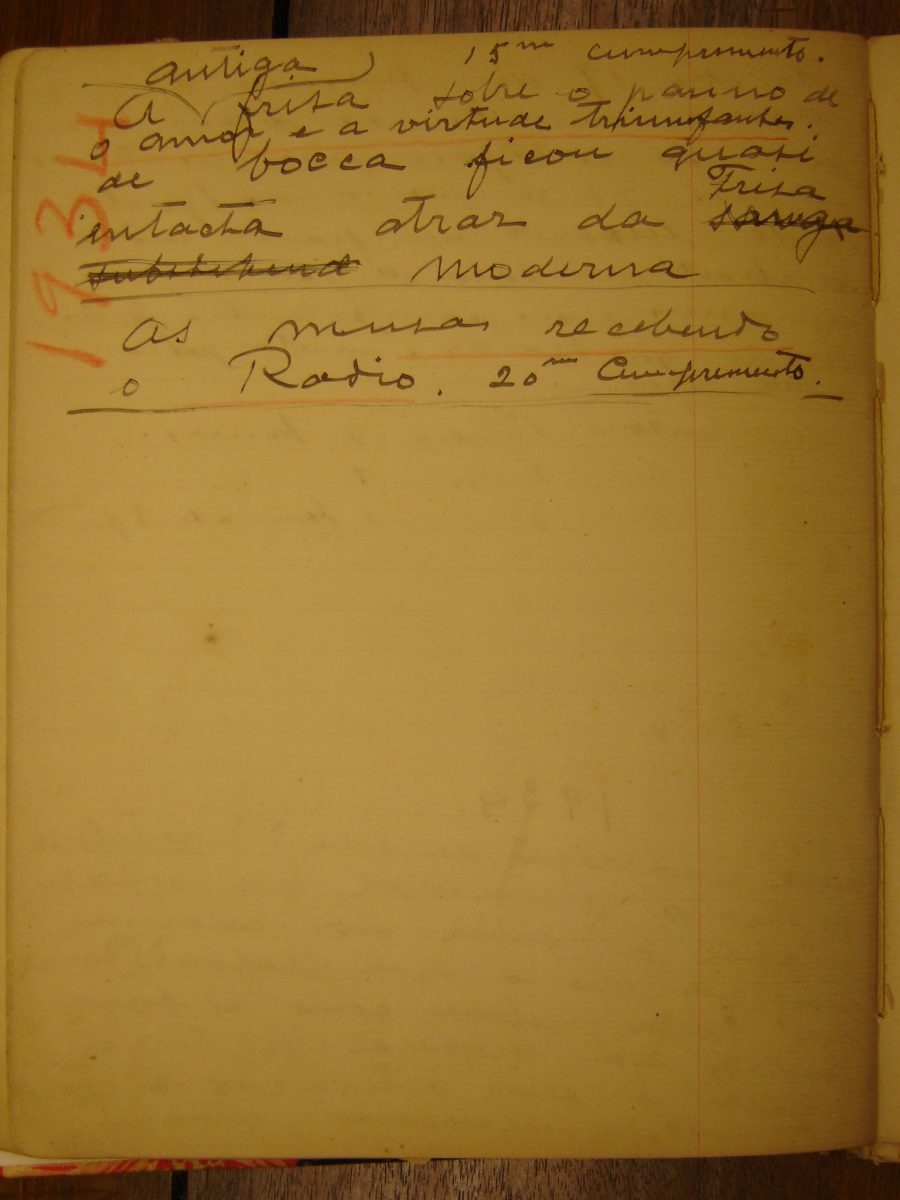 antiga 15m cumprimento.
A frisa sobre o panno de
o amor e a virtude triumfantes.
de bocca ficou quasi
Frisa
intacta atraz da
moderna
As musas recebendo
o Radio. 20m Cumprimento.
1934